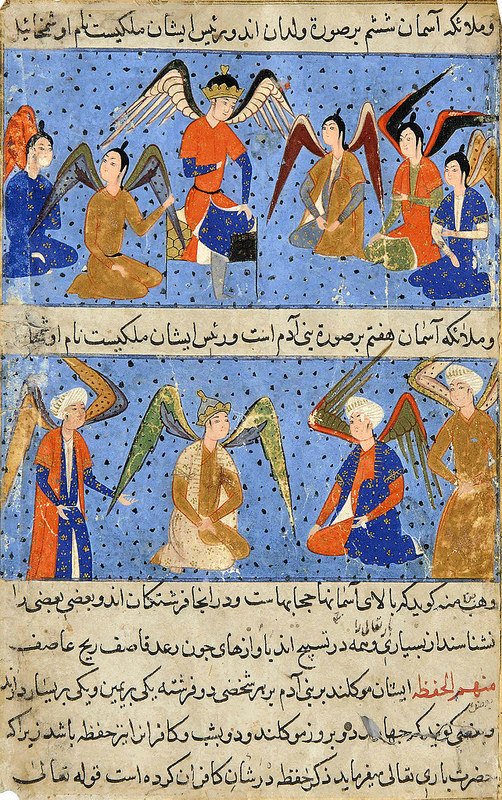 وملائكه آسمان ششم بر صورة ولدان اند ورئيس ايشان ملكيست نام او شمخائيل
وملائكه آسمان هفتم بر صورة بنى آدم است ورئيس ايشان ملكيست نام او
وهب بن منبه كويد كه بالاى آسمانها حجابهاست ودر آنجا فرشتكان اند وبعضى بعضى را
نشناسند از بسيارى وهمه در تسبيح اند باوازهاى چون رعد قاصف ريح عاصف
منهم الحفظه ايشان موكلند بر بنى آدم بر هر شخصى دو فرشته يكى بر يمين ويكى بر يسار دارند
وبعضى كويند كه چهارند دو بروز موكلند ودو بشب وكافرانرا نيز حفظه باشد زيرا كه
حضرت بارى تعالى ميفرمايد ذكر حفظه در شان كافران كرده است قوله تعالى